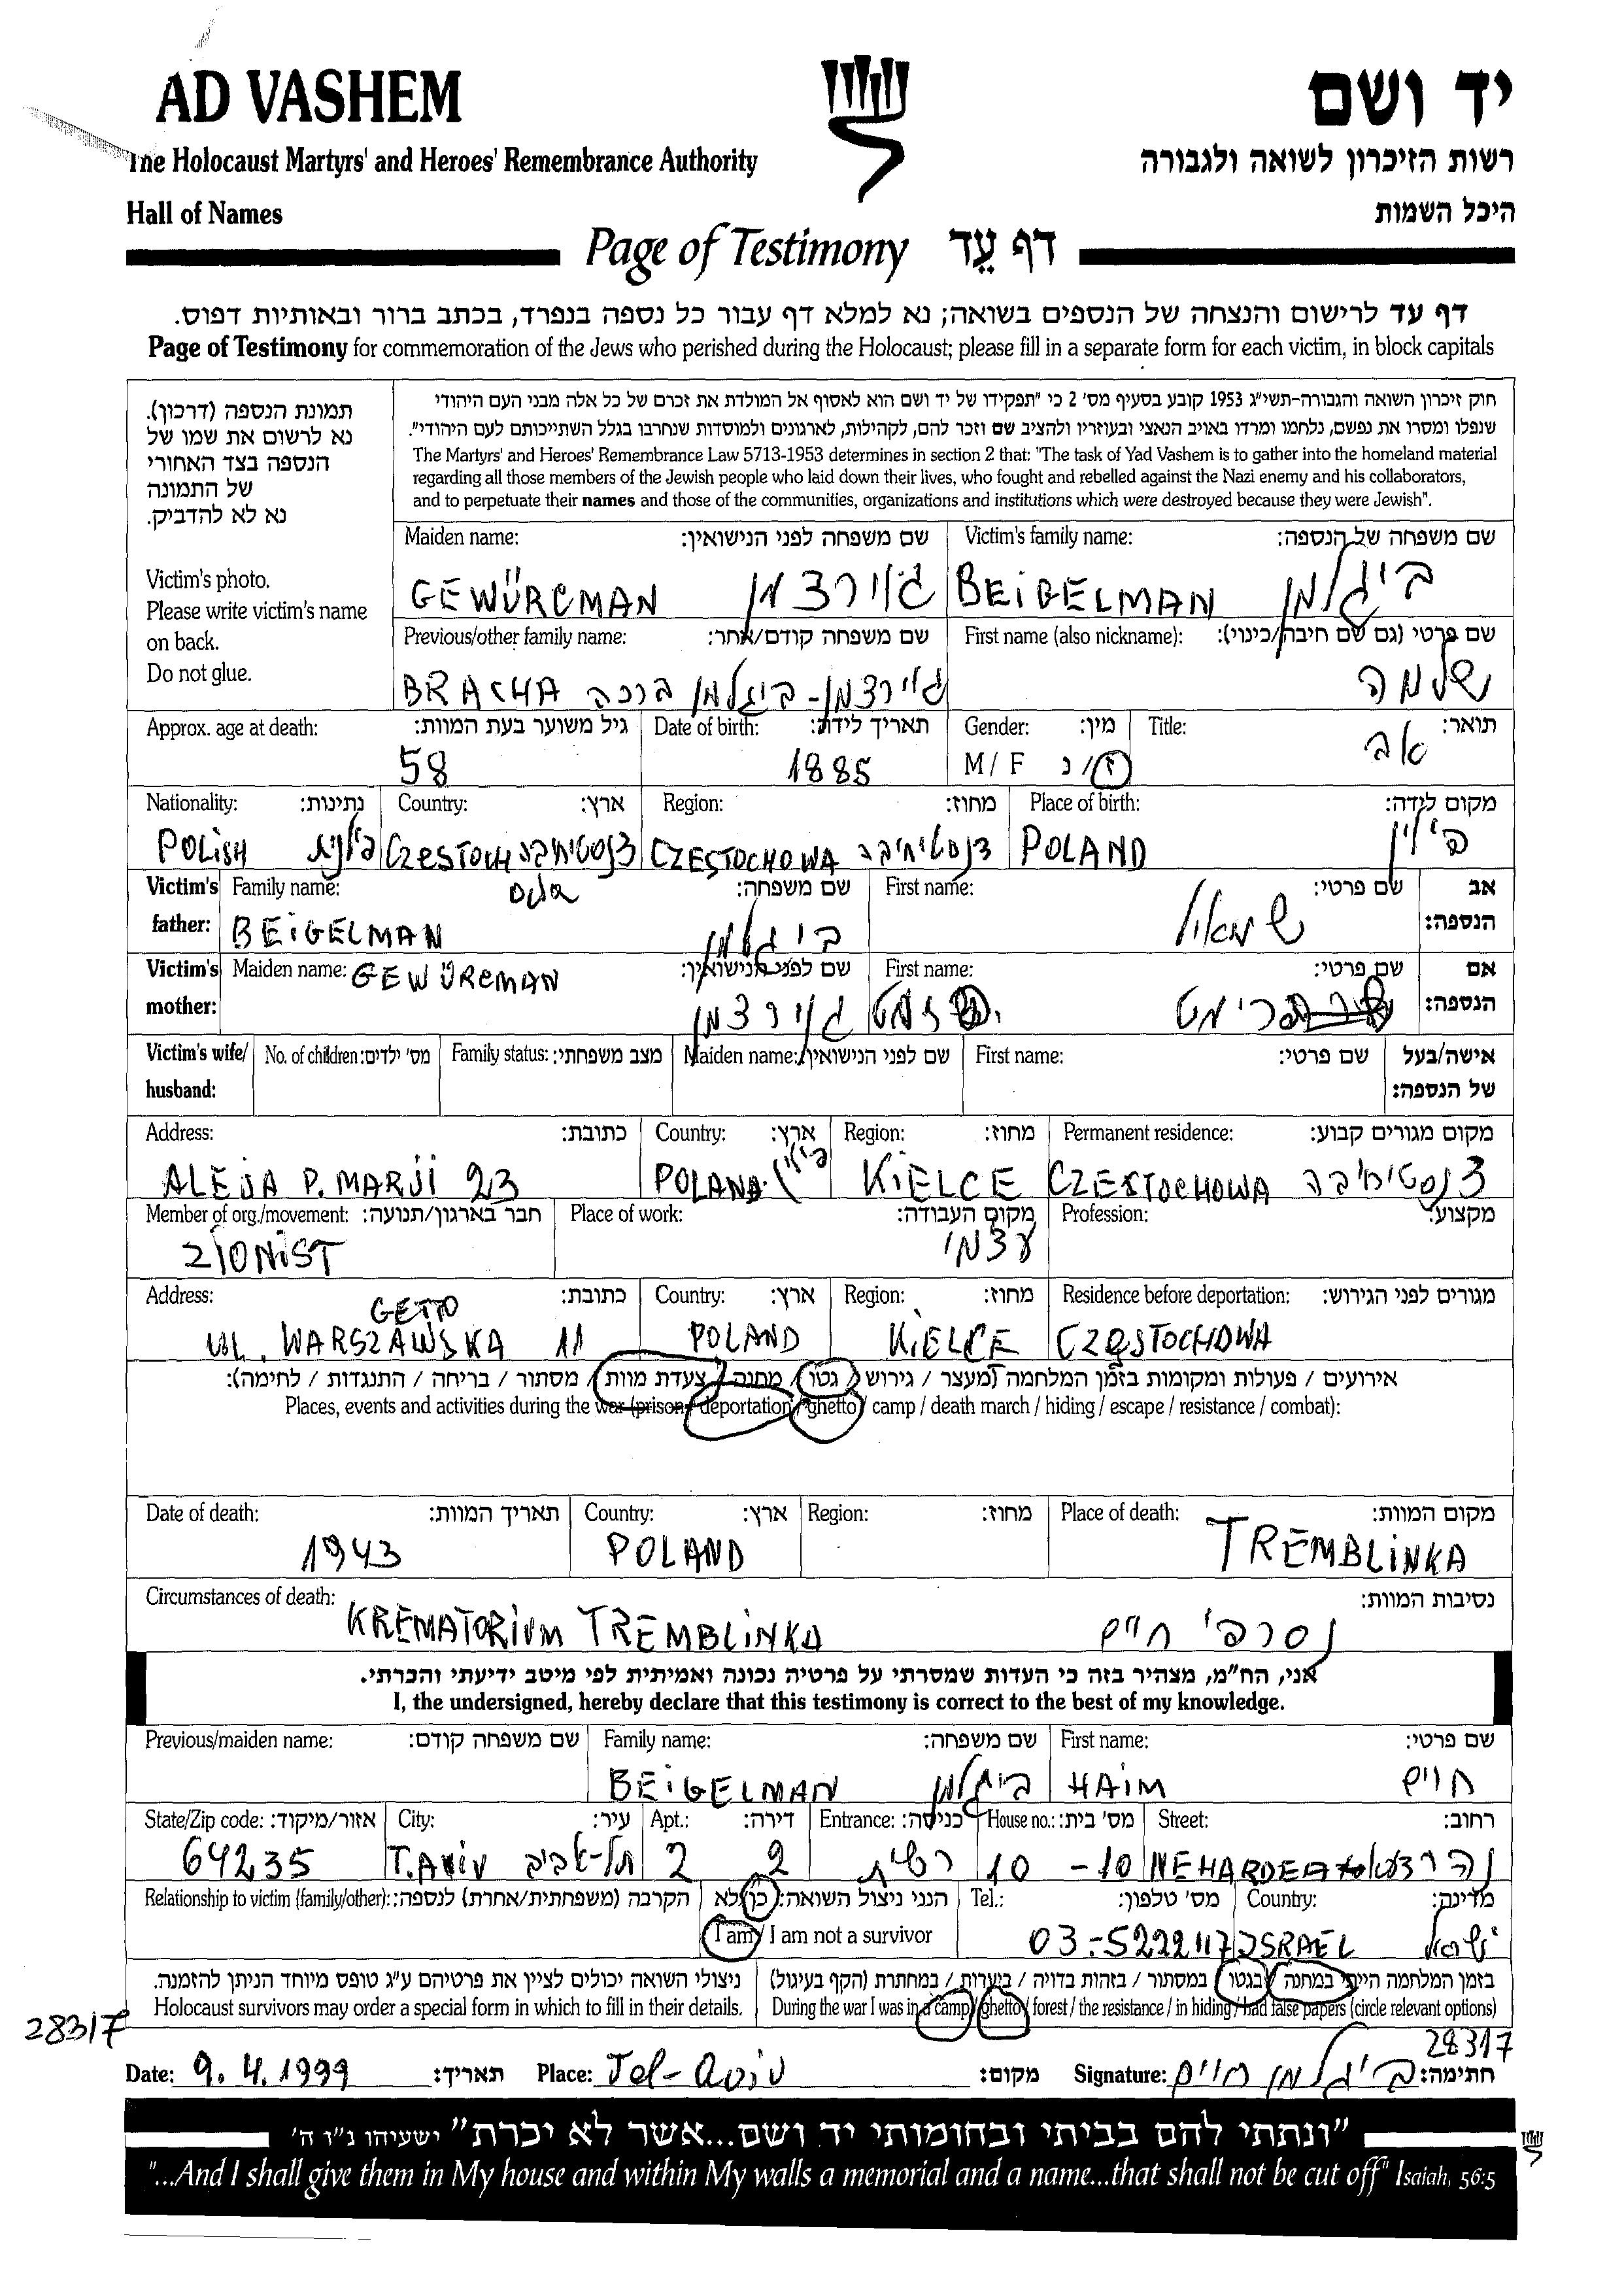 AD VASHEM
יד ושם
The Holocaust Martyrs' and Heroes' Remembrance Authority
רשות הזיכרון לשואה ולגבורה
Hall of Names
היכל השמות
Page of Testimony דף עֵד
דף עד לרישום והנצחה של הנספים בשואה; נא למלא דף עבור כל נספה בנפרד, בכתב ברור ובאותיות דפוס.
Page of Testimony for commemoration of the Jews who perished during the Holocaust; please fill in a separate form for each victim, in block capitals
תמונת הנספה (דרכון).
נא לרשום את שמו של
הנספה בצד האחורי
של התמונה
נא לא להדביק.
Victim's photo.
Please write victim's name
on back.
Do not glue.
חוק זיכרון השואה והגבורה-תשי"ג 1953 קובע בסעיף מס' 2 כי "תפקידו של יד ושם הוא לאסוף אל המולדת את זכרם של כל אלה מבני העם היהודי
שנפלו ומסרו את נפשם, נלחמו ומרדו באויב הנאצי ובעוזריו ולהציב שם וזכר להם, לקהילות, לארגונים ולמוסדות שנחרבו בגלל השתייכותם לעם היהודי".
The Martyrs' and Heroes' Remembrance Law 5713-1953 determines in section 2 that: "The task of Yad Vashem is to gather into the homeland material
regarding all those members of the Jewish people who laid down their lives, who fought and rebelled against the Nazi enemy and his collaborators,
and to perpetuate their names and those of the communities, organizations and institutions which were destroyed because they were Jewish".
Maiden name: שם משפחה לפני הנישואין: Victim's family name: שם משפחה של הנספה:
GEWÜRCMAN גוירצמן BEIGELMAN ביגלמן
Previous/other family name: שם משפחה קודם/אחר: First name (also nickname): שם פרטי (גם שם חיבה/כינוי):
BRACHA גוירצמן-ביגלמן ברכה שלמה
Approx. age at death: גיל משוער בעת המוות: Date of birth: תאריך לידה: Gender: מין: Title: תואר:
58 1885 M / F ז/נ אב
Nationality: נתינות: Country: ארץ: Region: מחוז: Place of birth: מקום לידה:
POLISH פולנית CZESTOCH צנסטוחובה CZESTOCHOWA צנסטוחובה POLAND פולין
Victim's father: Family name: שם משפחה: First name: שם פרטי: אב הנספה:
BEIGELMAN ביגלמן שמואל
Victim's mother: Maiden name: שם לפני הנישואין: First name: שם פרטי: אם הנספה:
GEWÜRCMAN גוירצמן
Victim's wife/ husband: No. of children: מס' ילדים: Family status: מצב משפחתי: Maiden name: שם לפני הנישואין: First name: שם פרטי: אישה/בעל של הנספה:
Address: כתובת: Country: ארץ: Region: מחוז: Permanent residence: מקום מגורים קבוע:
ALEJA P. MARJI 23 POLAND פולין KIELCE CZESTOCHOWA צנסטוחובה
Member of org./movement: חבר בארגון/תנועה: Place of work: מקום העבודה: Profession: מקצוע:
ZIONIST עצמי
Address: כתובת: Country: ארץ: Region: מחוז: Residence before deportation: מגורים לפני הגירוש:
GETTO
UL. WARSZAWSKA 11 POLAND KIELCE CZĘSTOCHOWA
אירועים / פעולות ומקומות בזמן המלחמה (מעצר / גירוש / גטו / מחנה / צעדת מוות / מסתור / בריחה / התנגדות / לחימה):
Places, events and activities during the war (prison / deportation / ghetto / camp / death march / hiding / escape / resistance / combat):
Date of death: תאריך המוות: Country: ארץ: Region: מחוז: Place of death: מקום המוות:
1943 POLAND TREMBLINKA
Circumstances of death: נסיבות המוות:
KREMATORIUM TREMBLINKA נשרפו חיים
אני, הח"מ, מצהיר בזה כי העדות שמסרתי על פרטיה נכונה ואמיתית לפי מיטב ידיעתי והכרתי.
I, the undersigned, hereby declare that this testimony is correct to the best of my knowledge.
Previous/maiden name: שם משפחה קודם: Family name: שם משפחה: First name: שם פרטי:
BEIGELMAN ביגלמן HAIM חיים
State/Zip code: אזור/מיקוד: City: עיר: Apt.: דירה: Entrance: כניסה: House no.: מס' בית: Street: רחוב:
64235 T.AVIV תל-אביב 2 2 10 -10 NEHARDEA נהרדעא
Relationship to victim (family/other): הקרבה (משפחתית/אחרת) לנספה: הנני ניצול השואה: כן/לא Tel.: מס' טלפון: Country: מדינה:
I am / I am not a survivor 03-5222117 ISRAEL ישראל
ניצולי השואה יכולים לציין את פרטיהם ע"ג טופס מיוחד הניתן להזמנה. בזמן המלחמה הייתי במחנה / בגטו / במסתור / בזהות בדויה / ביערות / במחתרת (הקף בעיגול)
Holocaust survivors may order a special form in which to fill in their details. During the war I was in a camp / ghetto / forest / the resistance / in hiding / had false papers (circle relevant options)
28317
28317
Date: 9.4.1999 תאריך: Place: Tel-Aviv מקום: Signature: ביגלמן חיים חתימה:
"ונתתי להם בביתי ובחומותי יד ושם...אשר לא יכרת" ישעיהו נ"ו ה'
"...And I shall give them in My house and within My walls a memorial and a name...that shall not be cut off" Isaiah, 56:5